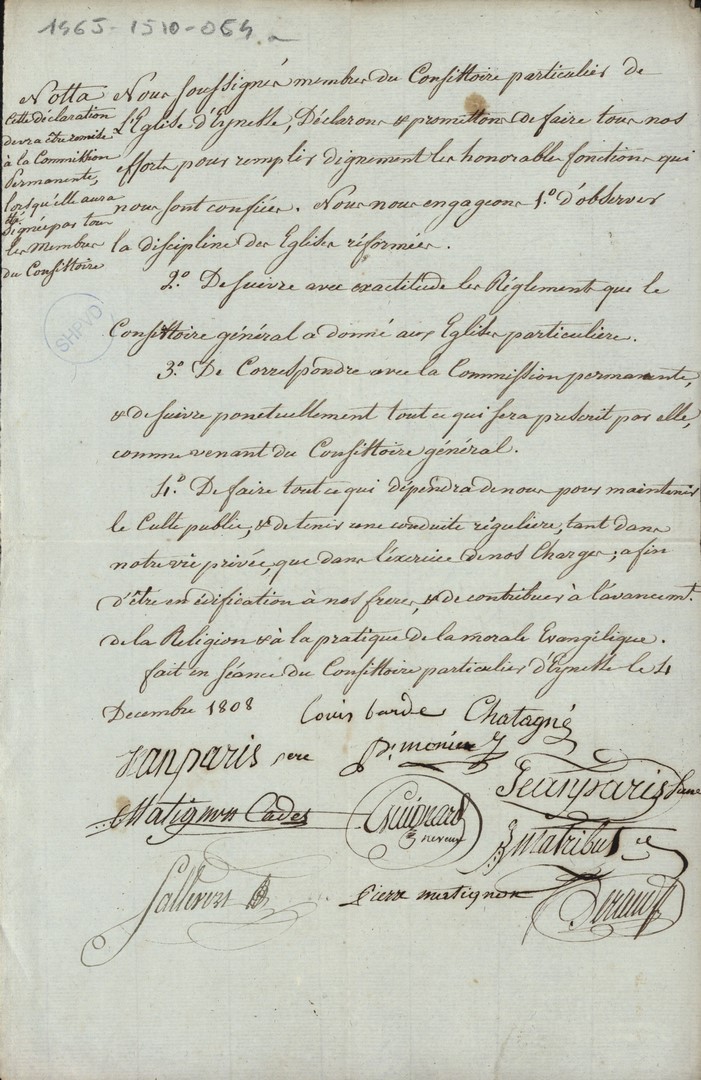 1965-1510-064
Notta
Cette déclaration
devra être remise
à la Commission
Permanente,
lorsqu'elle aura
été
signée par tous
les Membres
du Consistoire
SHPVD
Nous soussignés membres du Consistoire particulier de
l'Eglise d'Eynesse, Déclarons & promettons de faire tous nos
efforts pour remplir dignement les honorables fonctions qui
nous sont confiées. Nous nous engageons 1.º d'observer
la discipline des Eglises réformées.
2.º De suivre avec exactitude les Réglements que le
Consistoire général a donné aux Eglises particulieres.
3.º De Correspondre avec la Commission permanente,
& de suivre ponctuellement tout ce qui sera prescrit par elle,
comme venant du Consistoire général.
4.º De faire tout ce qui dépendra de nous pour maintenir
le Culte public, & de tenir une conduite réguliere, tant dans
notre vie privée, que dans l'exercice de nos Charges; afin
d'être en édification à nos freres, & de contribuer à l'avancemt.
de la Religion & à la pratique de la morale Evangélique.
fait en séance du Consistoire particulier d'Eynesse le 4
Decembre 1808
Louis barde Chatagné
Jean paris pere P. monier
Jean paris
Matignon Cadet Guignard
neveux
pierre matignon